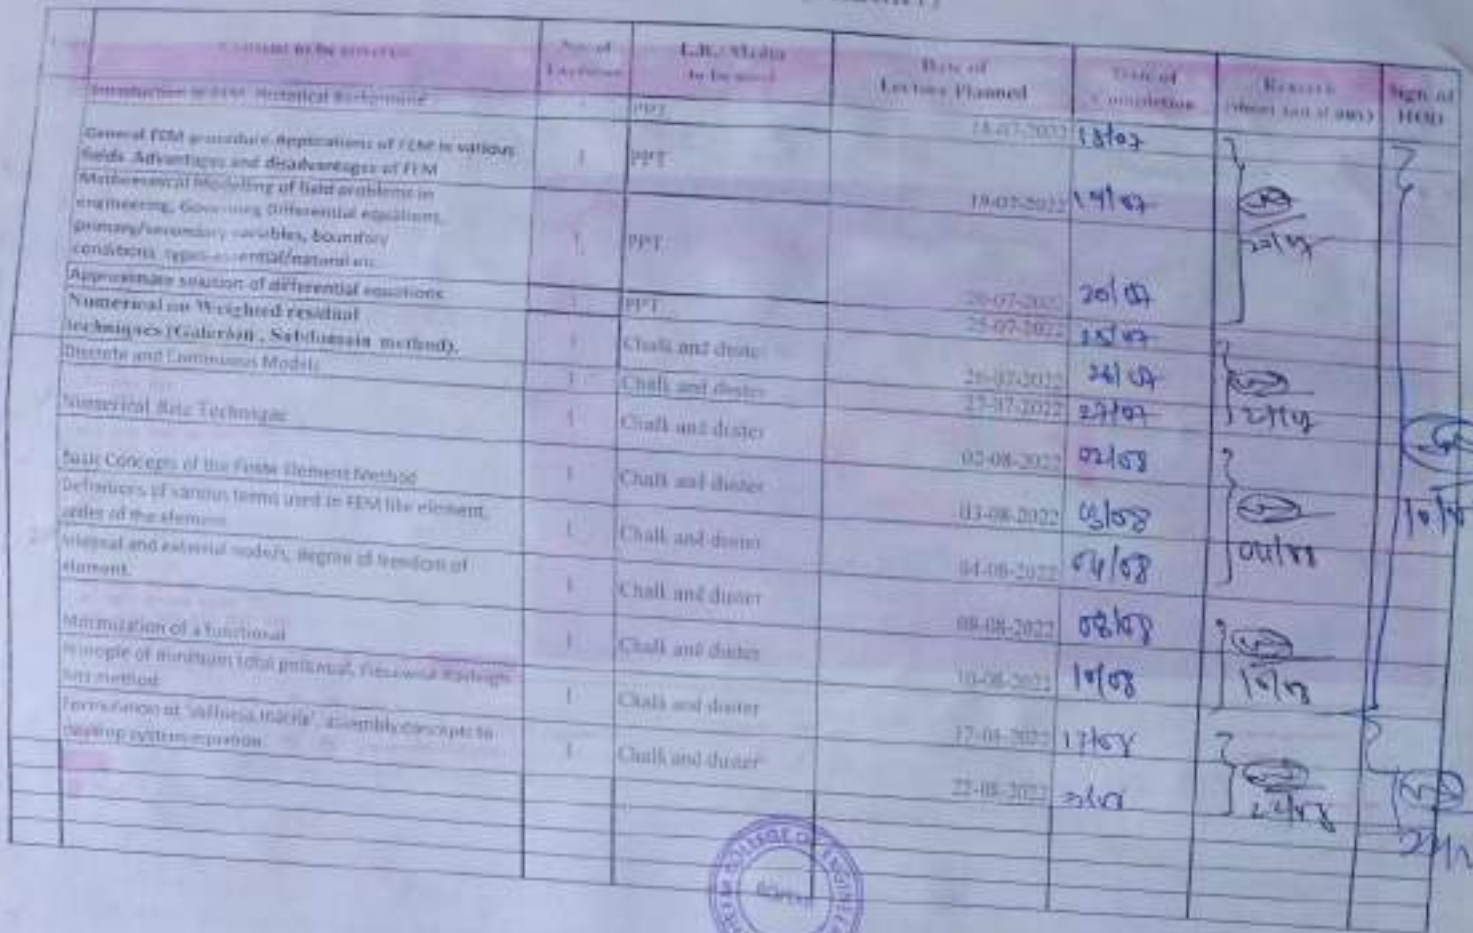 Content to be covered
No. of Lectures
L.R./ Media to be used
Date of Lecture Planned
Date of Completion
Remark
Sign. of HOD
Introduction to FEM, Historical Background
PPT
18-07-2022
18/07
General FEM procedure. Applications of FEM in various
fields. Advantages and disadvantages of FEM
1
PPT
19-07-2022
19/07
Mathematical Modelling of field problems in
engineering, Governing Differential equations,
primary/secondary variables, boundary
conditions, types-essential/natural
1
PPT
20-07-2022
20/07
Approximate solution of differential equations
PPT
25-07-2022
25/07
Numerical on Weighted residual
techniques (Galerkin , Subdomain method).
1
Chalk and duster
26-07-2022
26/07
Discrete and Continuous Models
1
Chalk and duster
27-07-2022
27/07
27/07
Numerical Ritz Technique
1
Chalk and duster
02-08-2022
02/08
Basic Concepts of the Finite Element Method
1
Chalk and duster
03-08-2022
03/08
Definitions of various terms used in FEM like element,
order of the element
1
Chalk and duster
04-08-2022
04/08
internal and external nodes/s, degree of freedom of
element.
1
Chalk and duster
08-08-2022
08/08
Minimization of a functional
1
Chalk and duster
10-08-2022
10/08
10/08
Principle of minimum total potential, Rayleigh-
Ritz method
1
Chalk and duster
17-08-2022
17/08
Formulation of 'stiffness matrix', assembly concepts to
develop system equation.
1
Chalk and duster
22-08-2022
22/08
COLLEGE OF